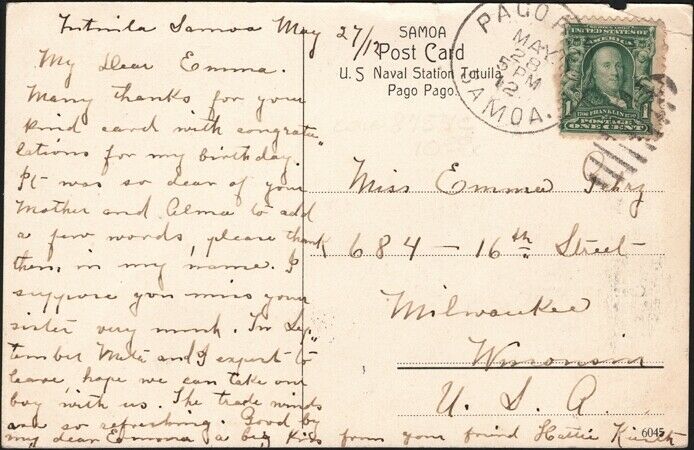 Tutuila Samoa May 27/12
My Dear Emma.
Many thanks for your
kind card with congratu"
lations for my birthday.
It was so dear of your
Mother and Alma to add
a few words, please thank
them in my name. I
suppose you miss your
sister very much. In Sep"
tember Meta and I expect to
leave, hope we can take our
boy with us. The trade winds
are so refreshing. Good by
my dear Emma a big kiss from your friend Hattie
SAMOA
Post Card
U. S Naval Station Tutuila
Pago Pago.
PAGO
MAY
28
5 PM
12
SAMOA.
UNITED STATES OF
AMERICA
1 FRANKLIN 1
POSTAGE
ONE CENT
Miss Emma
684 - 16th Street
Milwaukee
Wisconsin
U. S. A.
6045